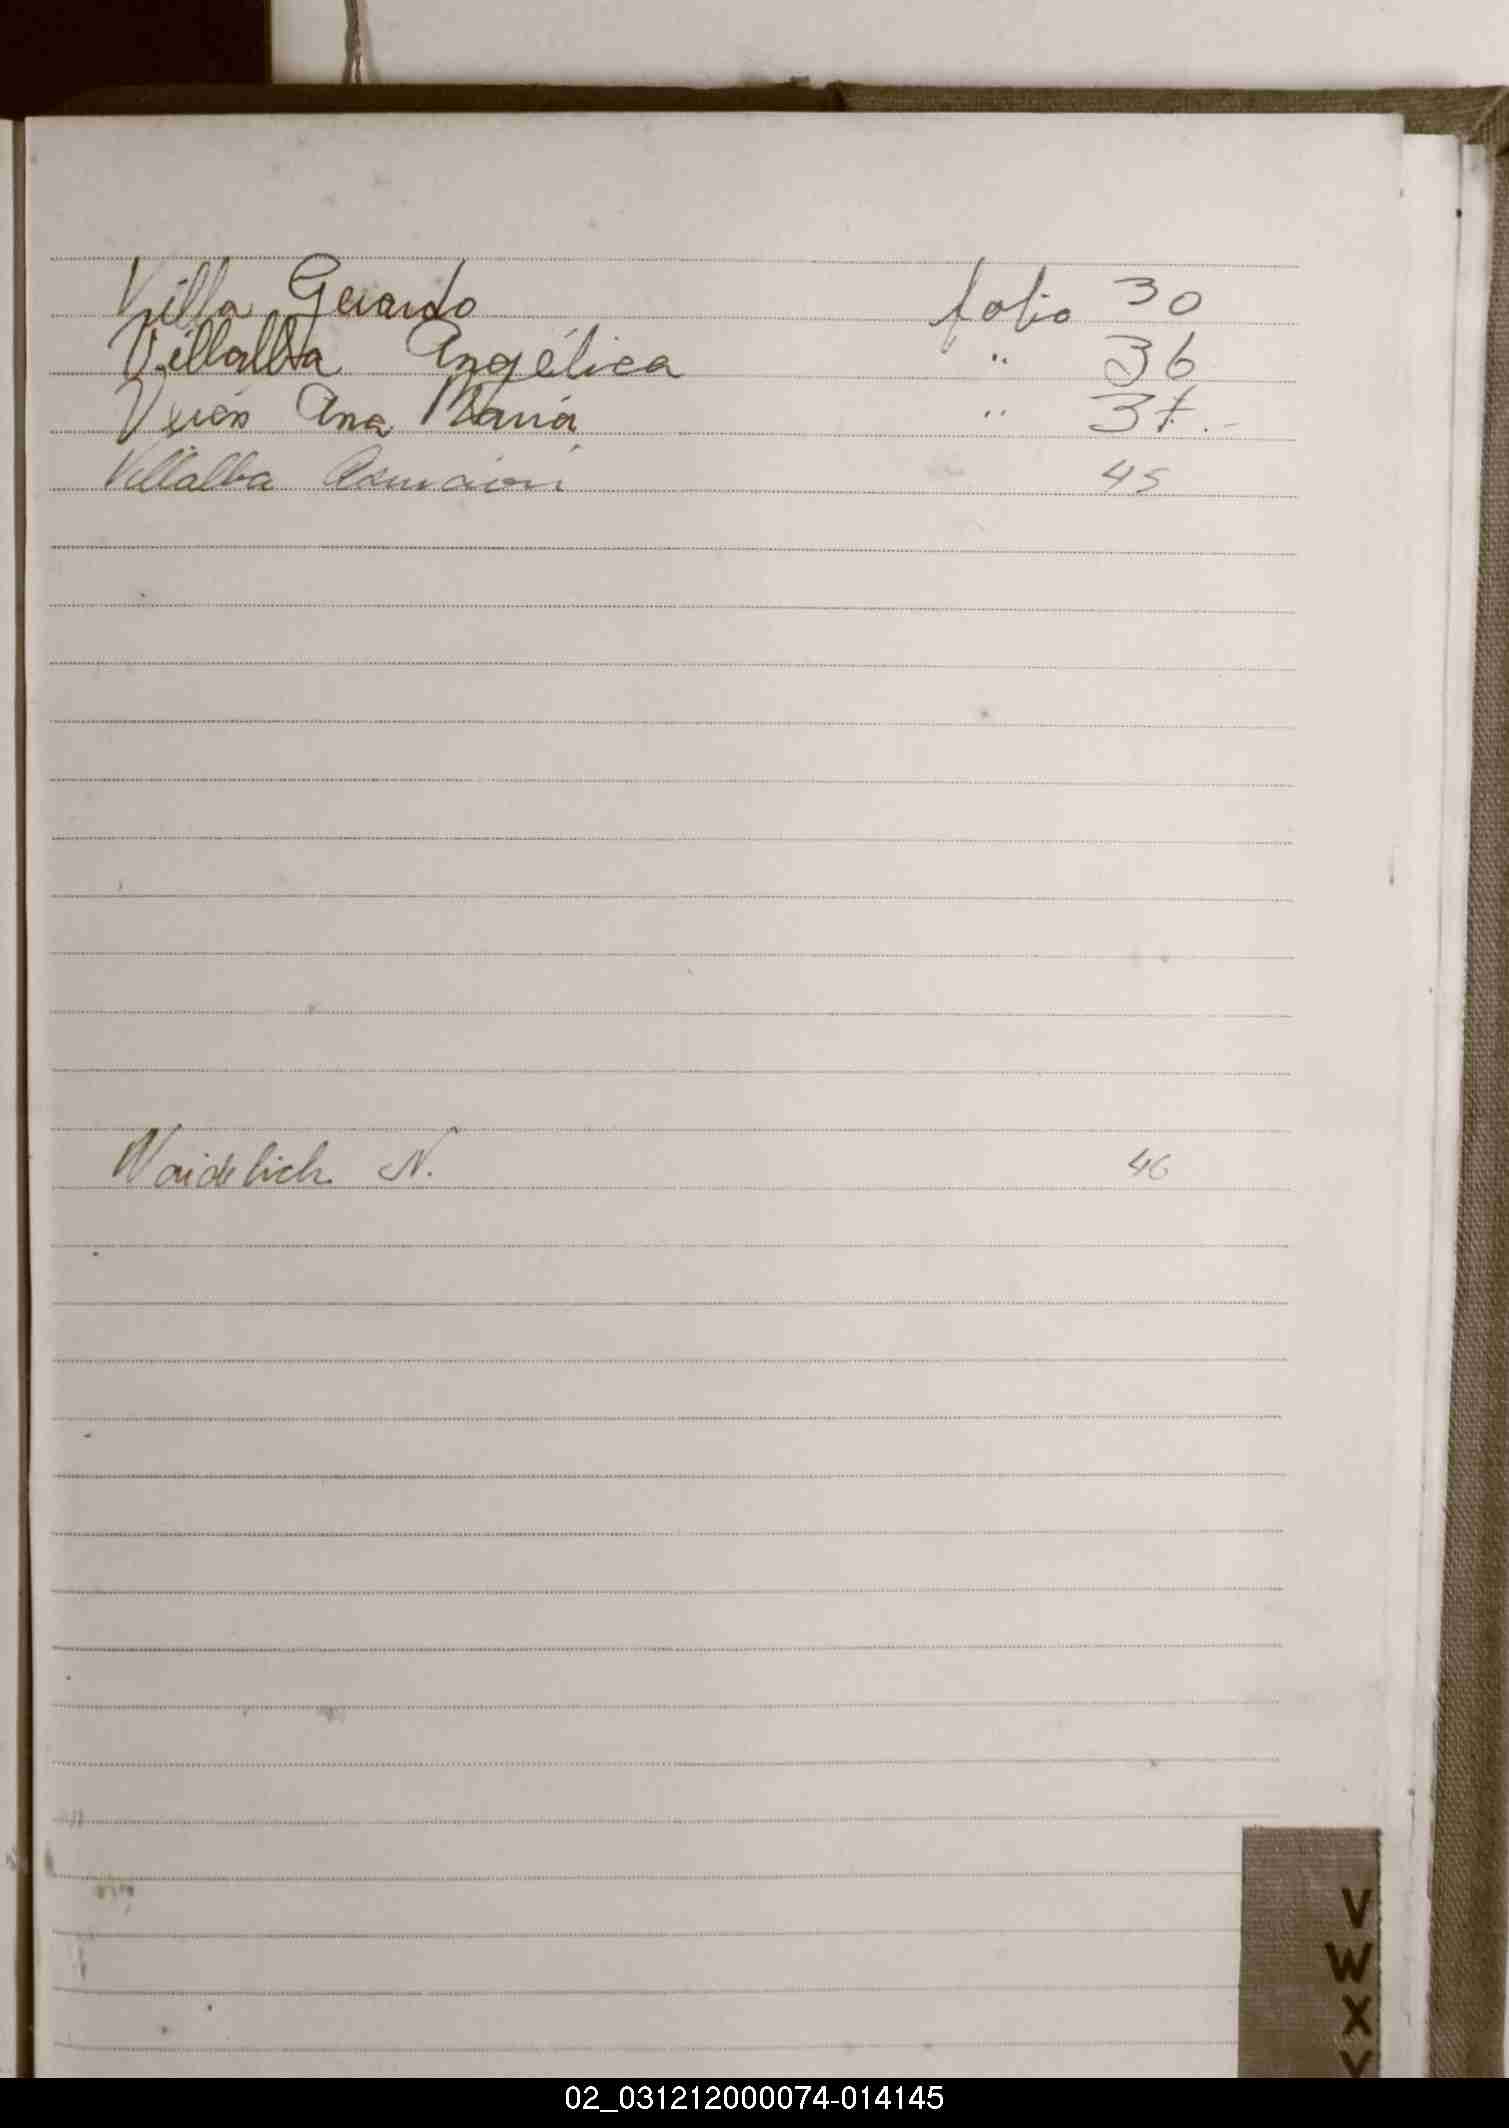 Villa Gerardo folio 30
Villalba Angélica " 36
Verón Ana María " 37.-
Villalba Asunción 45
Waidelich N. 46
V
W
X
Y
02_031212000074-014145